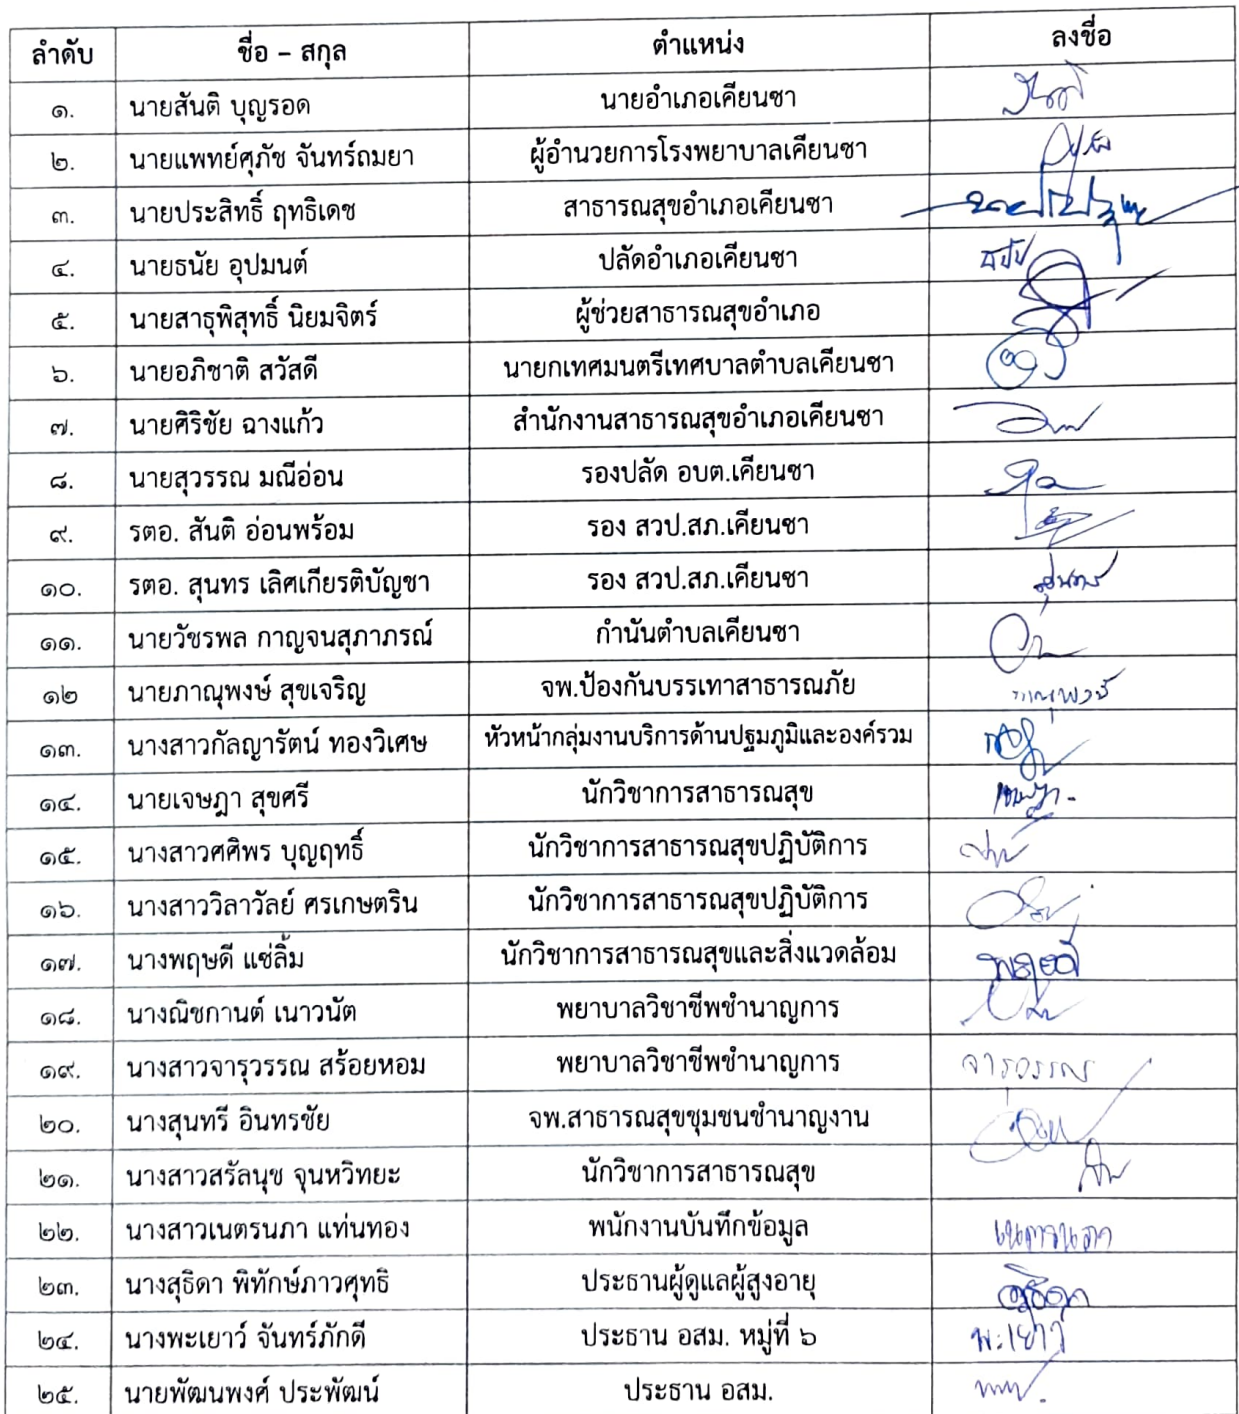 ลำดับ ชื่อ – สกุล ตำแหน่ง ลงชื่อ
๑. นายสันติ บุญรอด นายอำเภอเคียนซา
๒. นายแพทย์ศุภัช จันทร์ถมยา ผู้อำนวยการโรงพยาบาลเคียนซา
๓. นายประสิทธิ์ ฤทธิเดช สาธารณสุขอำเภอเคียนซา
๔. นายธนัย อุปมนต์ ปลัดอำเภอเคียนซา
๕. นายสาธุพิสุทธิ์ นิยมจิตร์ ผู้ช่วยสาธารณสุขอำเภอ
๖. นายอภิชาติ สวัสดี นายกเทศมนตรีเทศบาลตำบลเคียนซา
๗. นายศิริชัย ฉางแก้ว สำนักงานสาธารณสุขอำเภอเคียนซา
๘. นายสุวรรณ มณีอ่อน รองปลัด อบต.เคียนซา
๙. รตอ. สันติ อ่อนพร้อม รอง สวป.สภ.เคียนซา
๑๐. รตอ. สุนทร เลิศเกียรติบัญชา รอง สวป.สภ.เคียนซา สุนทร
๑๑. นายวัชรพล กาญจนสุภาภรณ์ กำนันตำบลเคียนซา
๑๒ นายภาณุพงษ์ สุขเจริญ จพ.ป้องกันบรรเทาสาธารณภัย ภาณุพงษ์
๑๓. นางสาวกัลญารัตน์ ทองวิเศษ หัวหน้ากลุ่มงานบริการด้านปฐมภูมิและองค์รวม
๑๔. นายเจษฎา สุขศรี นักวิชาการสาธารณสุข
๑๕. นางสาวศศิพร บุญฤทธิ์ นักวิชาการสาธารณสุขปฏิบัติการ
๑๖. นางสาววิลาวัลย์ ศรเกษตริน นักวิชาการสาธารณสุขปฏิบัติการ
๑๗. นางพฤษดี แซ่ลิ้ม นักวิชาการสาธารณสุขและสิ่งแวดล้อม พฤษดี
๑๘. นางณิชกานต์ เนาวนัต พยาบาลวิชาชีพชำนาญการ
๑๙. นางสาวจารุวรรณ สร้อยหอม พยาบาลวิชาชีพชำนาญการ จารุวรรณ
๒๐. นางสุนทรี อินทรชัย จพ.สาธารณสุขชุมชนชำนาญงาน
๒๑. นางสาวสรัลนุช จุนหวิทยะ นักวิชาการสาธารณสุข
๒๒. นางสาวเนตรนภา แท่นทอง พนักงานบันทึกข้อมูล เนตรนภา
๒๓. นางสุธิดา พิทักษ์ภาวศุทธิ ประธานผู้ดูแลผู้สูงอายุ สุธิดา
๒๔. นางพะเยาว์ จันทร์ภักดี ประธาน อสม. หมู่ที่ ๖ พะเยาว์
๒๕. นายพัฒนพงศ์ ประพัฒน์ ประธาน อสม.